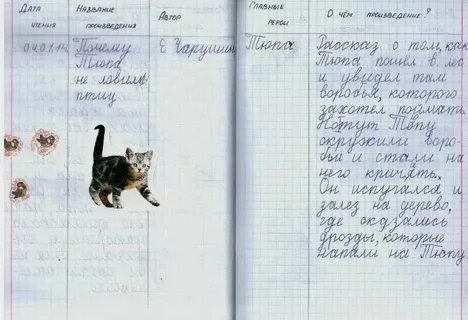 Дата
чтения
Название
произведения
Автор
Главные
герои
О чём произведение?
Почему
Тюпа
не ловит
птиц
Е. Чарушин
Тюпа
Рассказ о том, как
Тюпа пошёл в лес
и увидел там
воробья, которого
захотел поймать.
Но тут Тюпу
окружили воро-
бьи и стали на
него кричать.
Он испугался и
залез на дерево,
где оказались
дрозды, которые
напали на Тюпу.